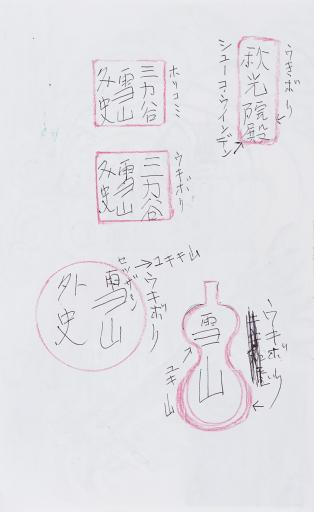 うきボリ
秋光院殿
シューコーウインデン
ホリコミ
三力谷
雪山
外史
ウキボリ
三力谷
雪山
外史
セツザン→ユキ山
ウキボリ
雪山
外史
ウキボリ
雪山
ユキ山